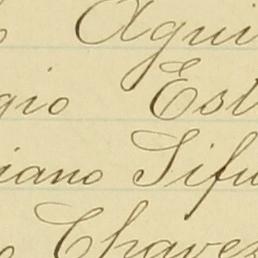 o Agui
gio Est
iano Sifu
o Chavez